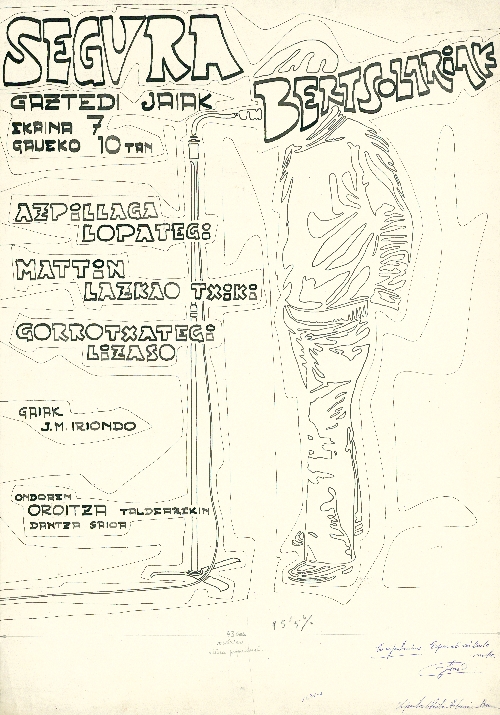 SEGURA
BERTSOLARIAK
GAZTEDI JAIAK
EKAINA 7
GAUEKO 10 TAN
AZPILLAGA
LOPATEGI
MATTIN
LAZKAO TXIKI
GORROTXATEGI
LIZASO
GAIAK
J.M. IRIONDO
ONDOREN
OROITZA TALDEAREKIN
DANTZA SAIOA